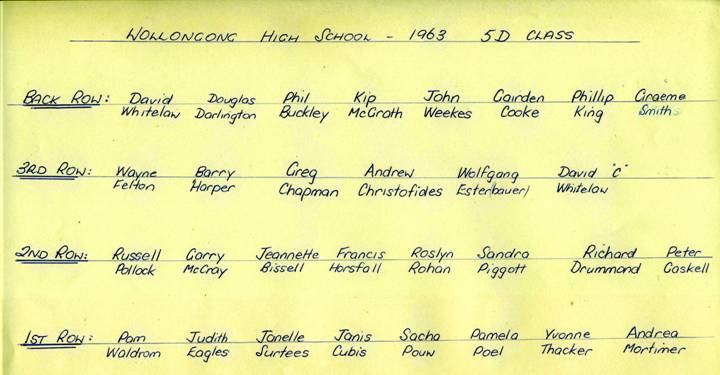 WOLLONGONG HIGH SCHOOL - 1963 5D CLASS
BACK ROW: David Douglas Phil Kip John Gairden Phillip Graeme
Whitelaw Darlington Buckley McGrath Weekes Cooke King Smith
3RD ROW: Wayne Barry Greg Andrew Wolfgang David "C"
Felton Harper Chapman Christofides Esterbauer Whitelow
2ND ROW: Russell Garry Jeannette Francis Roslyn Sandra Richard Peter
Pollock McCray Bissell Horsfall Rohan Piggott Drummond Gaskell
1ST ROW: Pam Judith Janelle Janis Sacha Pamela Yvonne Andrea
Waldrom Eagles Surtees Cubis Pouw Poel Thacker Mortimer